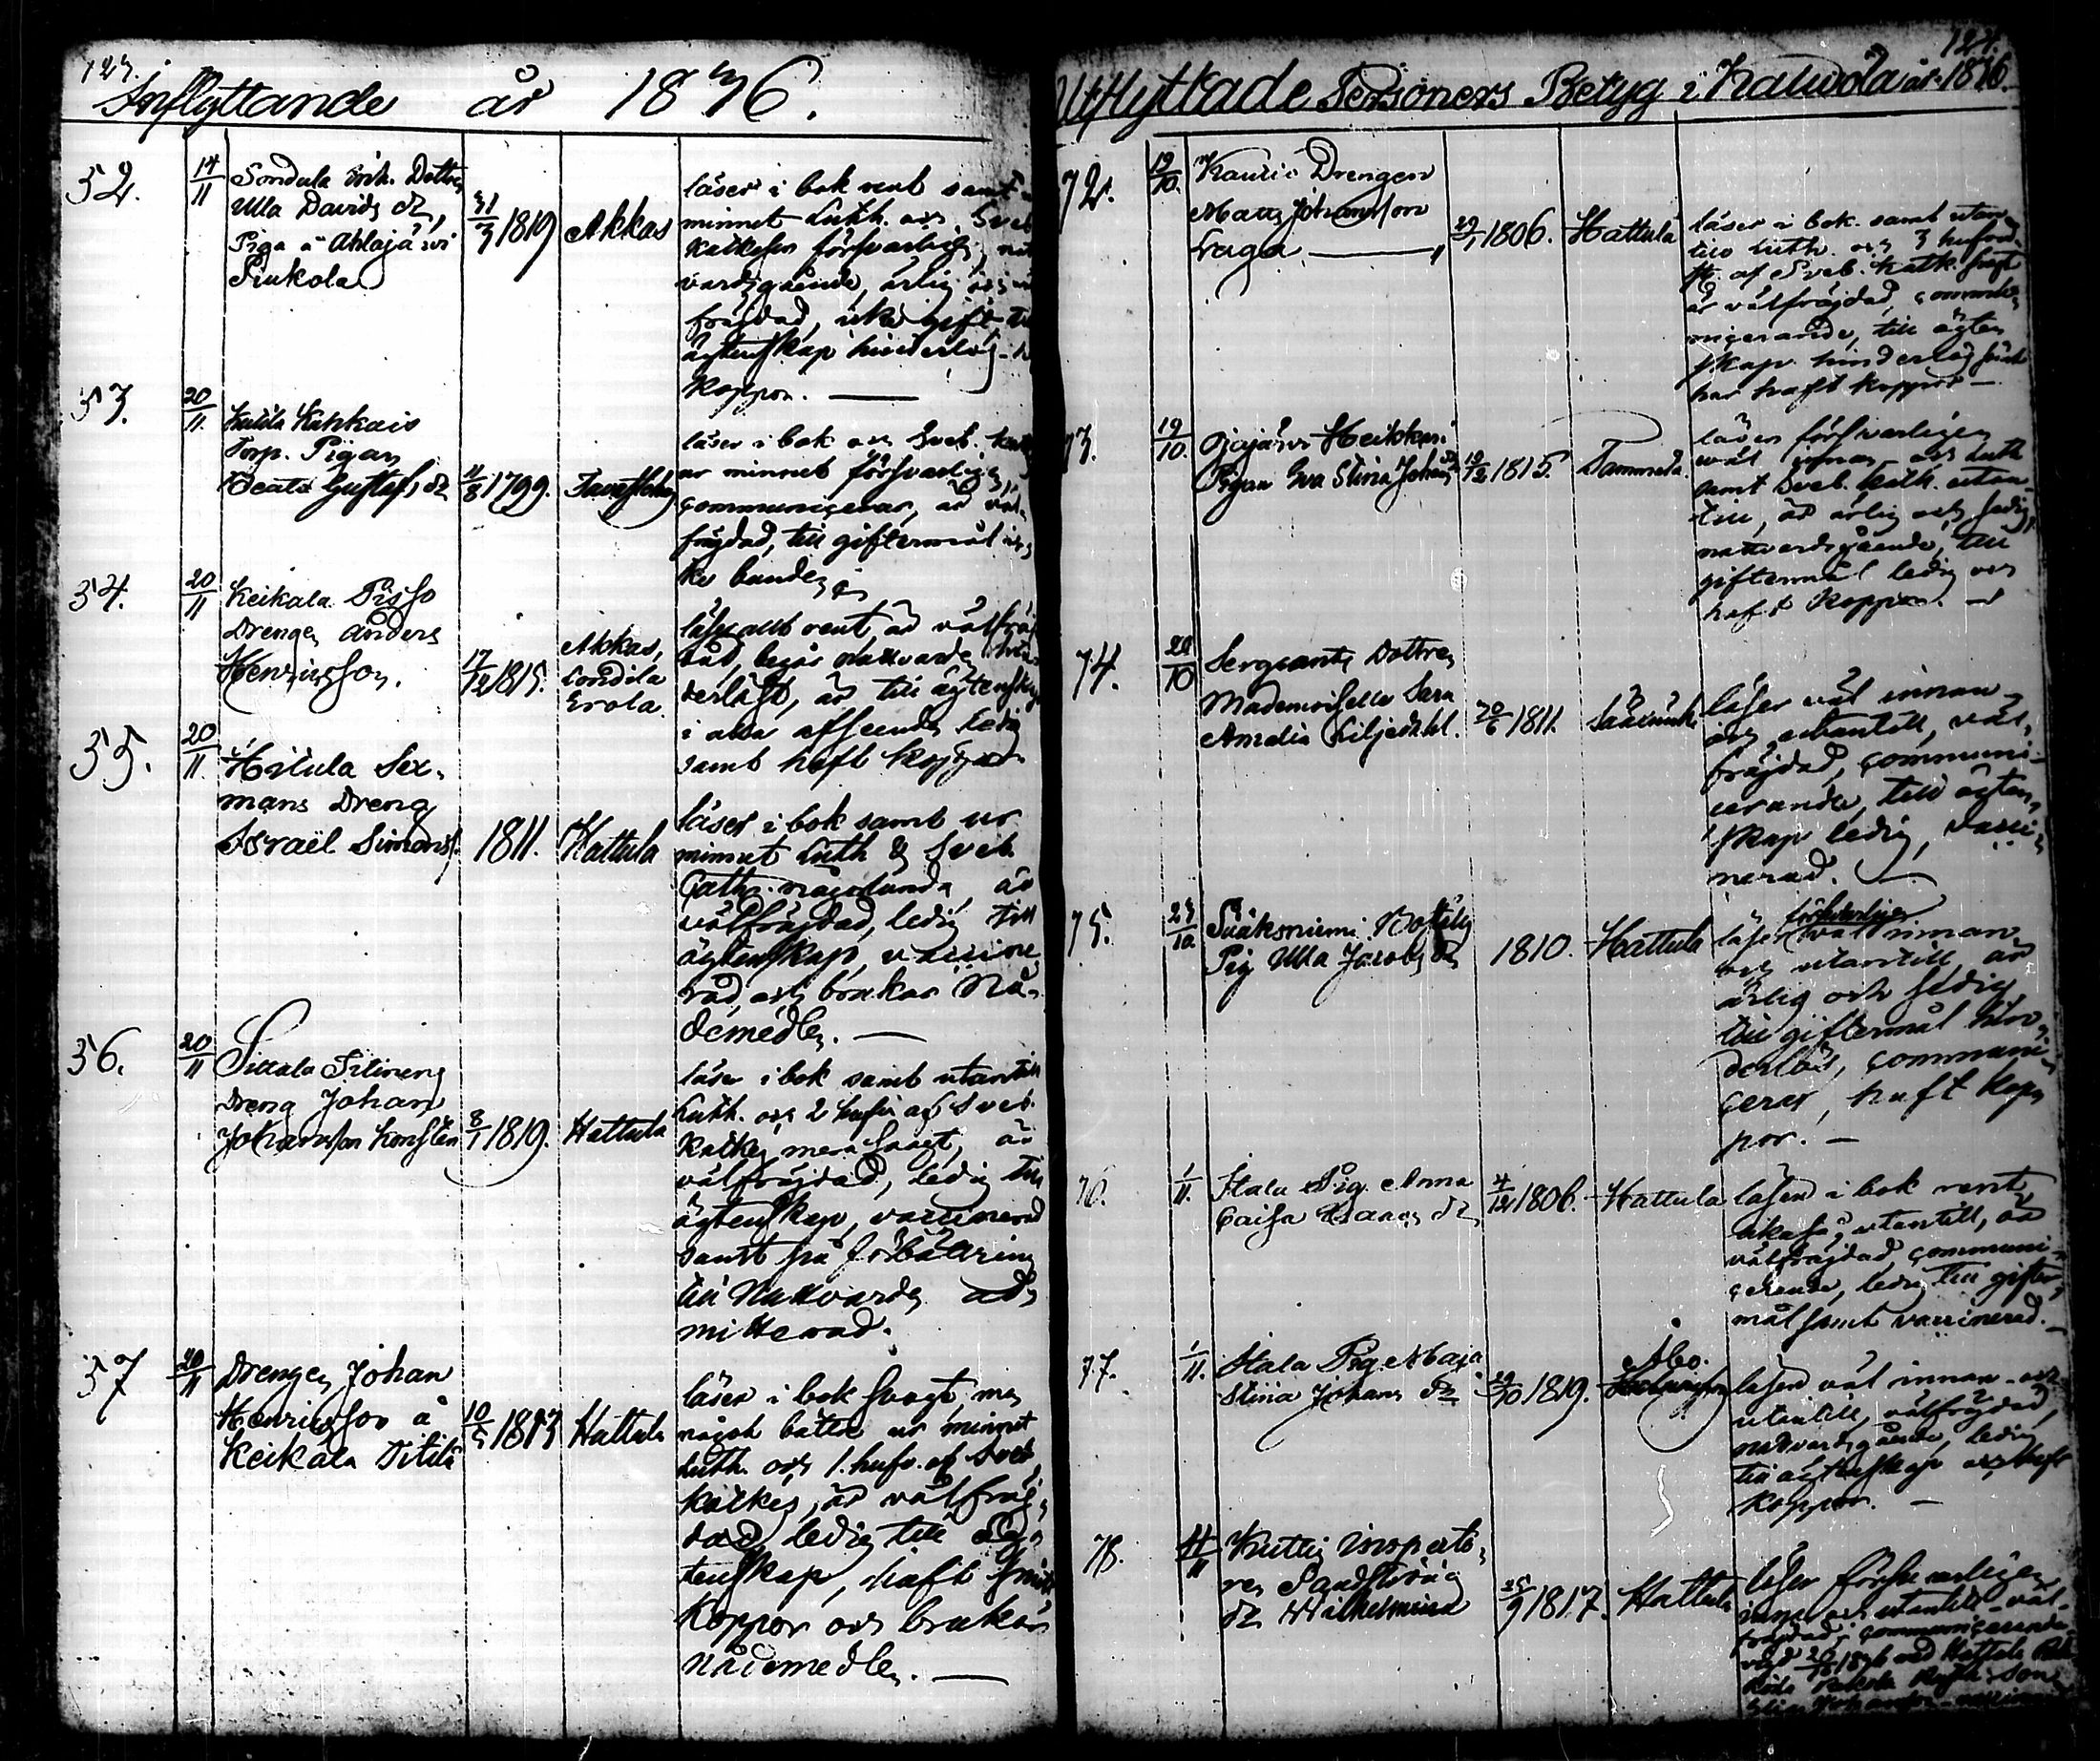 123.
Inflyttande år 1836.
52. 14/11 Sondala Erik. Dottren
Ulla Davids dr,
Piga a Ahlajärvi
Piukola
31/3 1819 Akkas
läser i bok rent samt
minnet Luth. och Sveb
Katkesen försvarligt, natt
vardsgående, ärlig och
frejdad, icke gift, till
ägtenskap hinderlös
koppor. —
53. 20/11 Kutila Kahkais
Torp. Pigan
Beata Gustafs dr
4/8 1799. Tavastehus
läser i bok och Sveb.
ur minnet försvarligen,
communicerar, är väl
fräjdad, till giftermål ic
ke bunden
54. 20/11 Keikala Pisso
Drengen Anders
Henriksson.
17/12 1815. Akkas,
Sondila
Erola.
läser allt rent, är välfräj
dad, begår nattvarden hin
derlöst, är till ägtenskap
i alla afseenden ledig
samt haft koppor
55. 20/11. Hitula Sex,
mans Dreng
Israël Simonss.
1811. Hattula
läser i bok samt ur
minnet Luth & Sveb.
Cath. någorlunda, är
välfräjdad, ledig till
ägtenskap, vaccine
rad, och brukar Nå-
demedlen. —
56. 20/11 Sittala
Dreng Johan
Johansson Konstén
8/1 1819. Hattula
läser i bok samt utantill
Luth. och 2 hufv. af Sveb.
Katkes, mera svagt, är
välfräjdad, ledig till
ägtenskap, vaccinerad
samt på förbättring
till Nattvarden ad,
mitterad.
57 20/11 Drengen Johan
Henriksson å
Keikala Titilä
10/5 1813 Hattula
läser i bok svagt, men
något bättre ur minnet
Luth. och 1. hufv. af Sveb.
Katkes, är välfräj,
dad, ledig till äg
tenskap, haft
koppor och brukar
nådemedlen. —
124.
Utflyttade Personers Betyg i Kalvola år 1836.
72. 19/10. Kauris Drengen
Matts Johansson
Fraga —
1806. Hattula
läser i bok. samt utan
till Luth. och 3 hufvud
st. af Sveb. Katk. svagt
är välfräjdad, commu
nicerande, till ägten
skap hinderlös samt
har haft koppor —
73. 19/10. Ojajärvi Heikkari
Pigan Eva Stina Johans dr
19/12 1815. Tammela.
läser försvarligen
väl innan och Luth
samt Sveb. Katk. utan
till, är ärlig och sedig,
nattvardsgående, till
giftermål ledig och
haft koppor. —
74. 20/10 Sergeants Dottren
Mademoiselle Sara
Amalia Liljedahl.
20/6 1811. Sääksmäki
läser väl innan
och utantill, väl,
fräjdad, communi
cerande, till ägten,
skap ledig, vacci
nerad.
75. 23/10 Sääksniemi
Pig Ulla Jacobs dr
1810. Hattula
försvarligen
läser väl innan
och utantill är
ärlig och sedig
till giftermål hin,
derlös, communi
cerar, haft kop
por. —
76. 1/11. Itala Pig. Anna
Caisa Isaacs dr
4/12 1806. Hattula
läser i bok rent
utantill, är
välfräjdad, communi
cerande, ledig till gifter,
mål samt vaccinerad. —
77. 1/11. Itala Pig. Maja
Stina Johans dr
29/10 1819. Åbo.
läser väl innan och
utantill, välfräjdad,
nattvardsgående, ledig
till ägtenskap och haft
koppor. —
78. 4/11 Kuttis Inspecto,
ren Sandströms
dr Wilhelmina
25/9 1817. Hattula
läser försvarligen
innan och utantill, väl
fräjdad, communicerande
1836 med Hattula
son